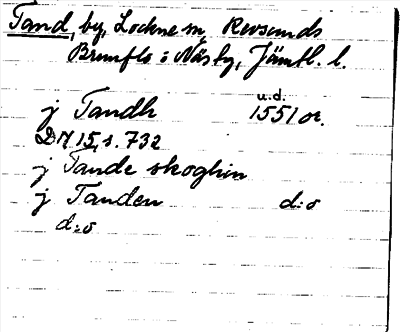 Tand, by, Lockne sn, Revsunds
Brunflo i Näsby, Jämtl. l.
u.d.
j Tandh 1551 or.
DN 15, s. 732
j Tande skoghin
j Tanden d:o
d:o